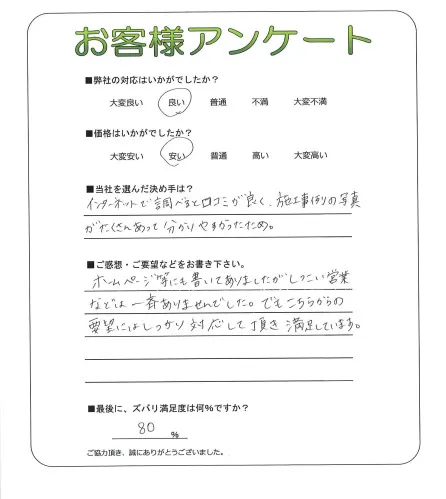 お客様アンケート
■弊社の対応はいかがでしたか？
大変良い 良い 普通 不満 大変不満
■価格はいかがでしたか？
大変安い 安い 普通 高い 大変高い
■当社を選んだ決め手は？
インターネットで調べると口コミが良く、施工事例の写真
がたくさんあって分かりやすかったため。
■ご感想・ご要望などをお書き下さい。
ホームページ等にも書いてありましたがしつこい営業
などは一斉ありませんでした。でもこちらからの
要望にはしっかり対応して頂き満足しています。
■最後に、ズバリ満足度は何%ですか？
80 %
ご協力頂き、誠にありがとうございました。